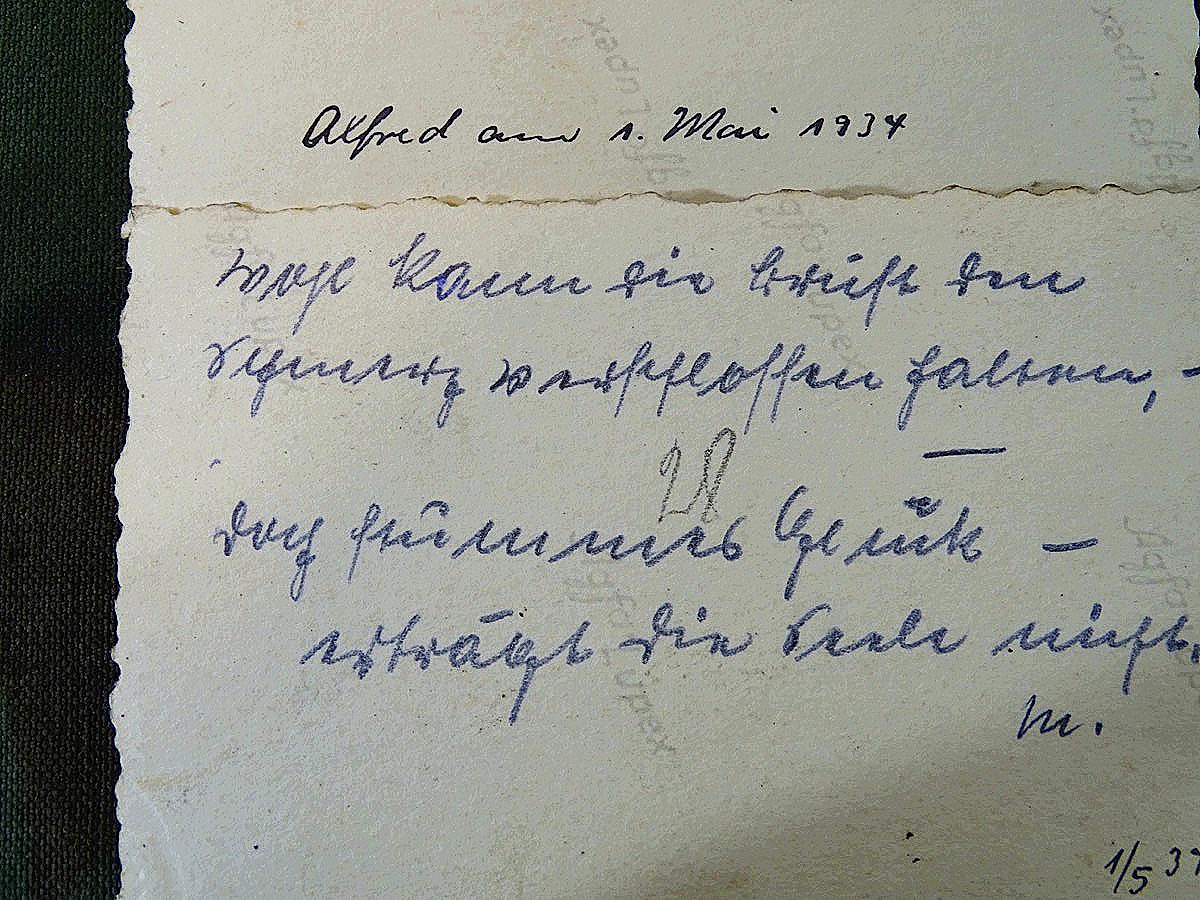 Alfred am 1. Mai 1934
Wohl kann die Brust den
Schmerz verschlossen halten, -
28
doch stummes Glück –
erträgt die Seele nicht.
M.
1/5 37
Agfa Lupex